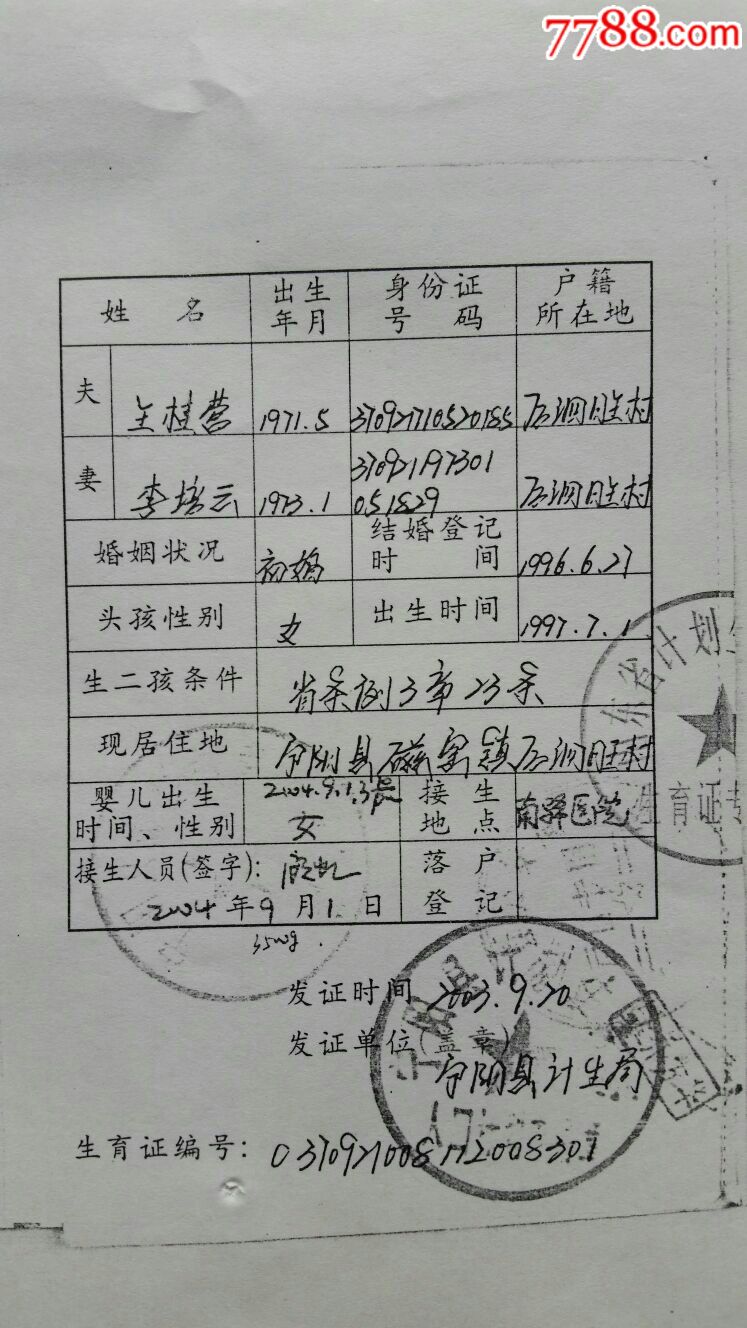 7788.com
姓 名 出生年月 身份证号码 户籍所在地
夫 1971.5 后泗旺村
妻 李培云 1973.1 370921197301051829 后泗旺村
婚姻状况 初婚 结婚登记时间 1996.6.27
头孩性别 女 出生时间 1997.7.1
生二孩条件 省条例3章23条
现居住地 宁阳县磁窑镇后泗旺村
婴儿出生时间、性别 2004.9.1 女 接生地点 南驿医院
接生人员(签字): 落户登记
2004年9月1日
3500g.
发证时间 2003.9.20
发证单位(盖章)
宁阳县计生局
生育证编号:
东省计划生
生育证专
宁阳县计划